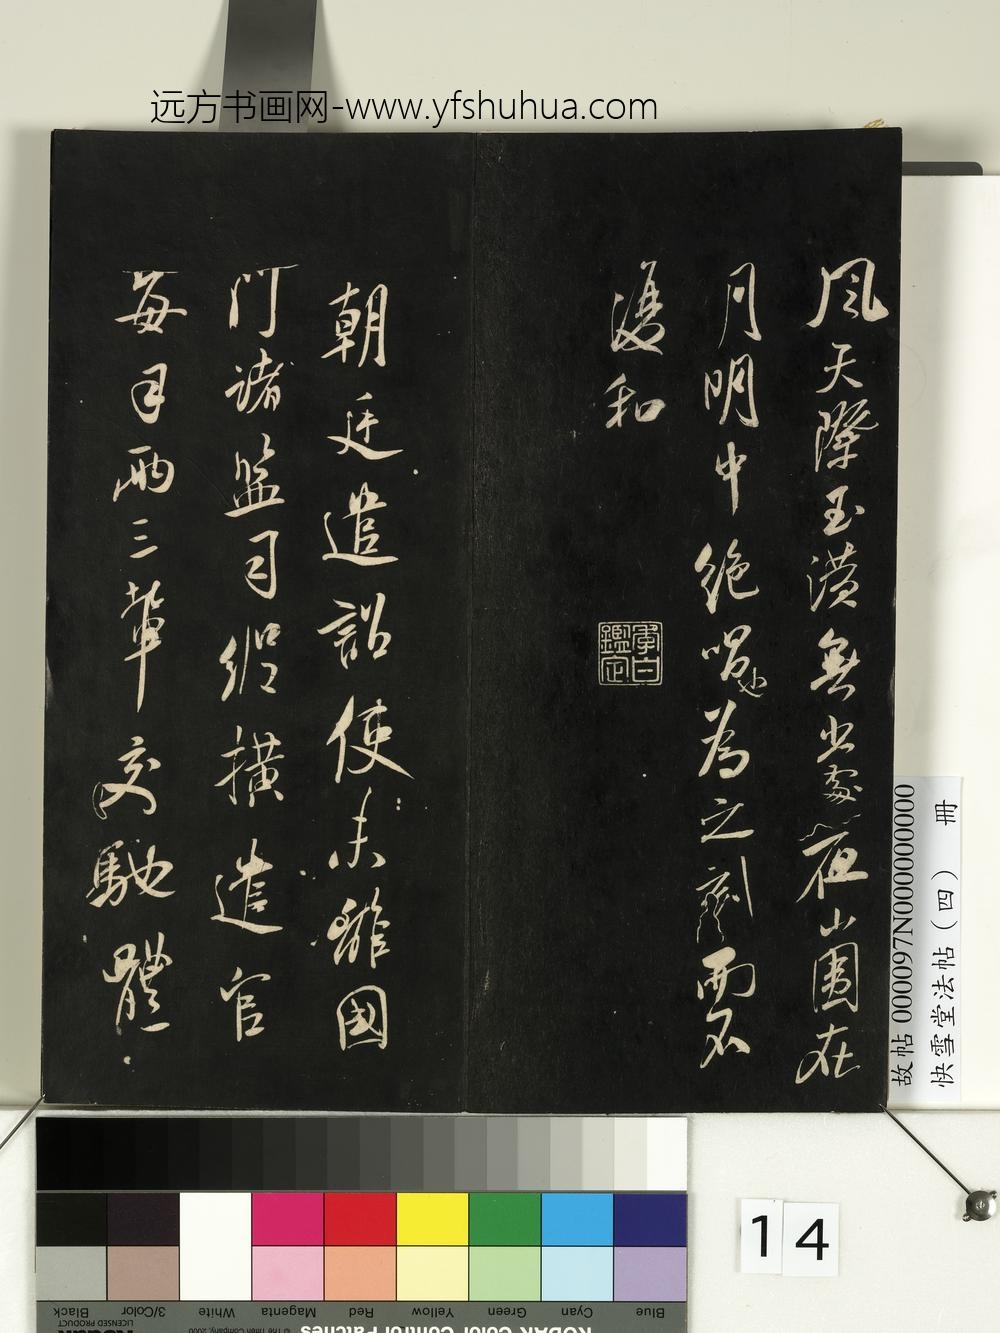 远方书画网-www.yfshuhua.com
風天際玉潢無少處夜山圍在
月明中絶唱也為之刻而不
復和
李日
鑑定
朝廷遣詔使未離國
門諸監司縱撗遣官
每日兩三輩交馳體
故帖 000097N000000000
快雪堂法帖（四） 冊
14
Blue Cyan Green Yellow Red Magenta White 3/Color Black
KODAK Color Control Patches
LICENSED PRODUCT